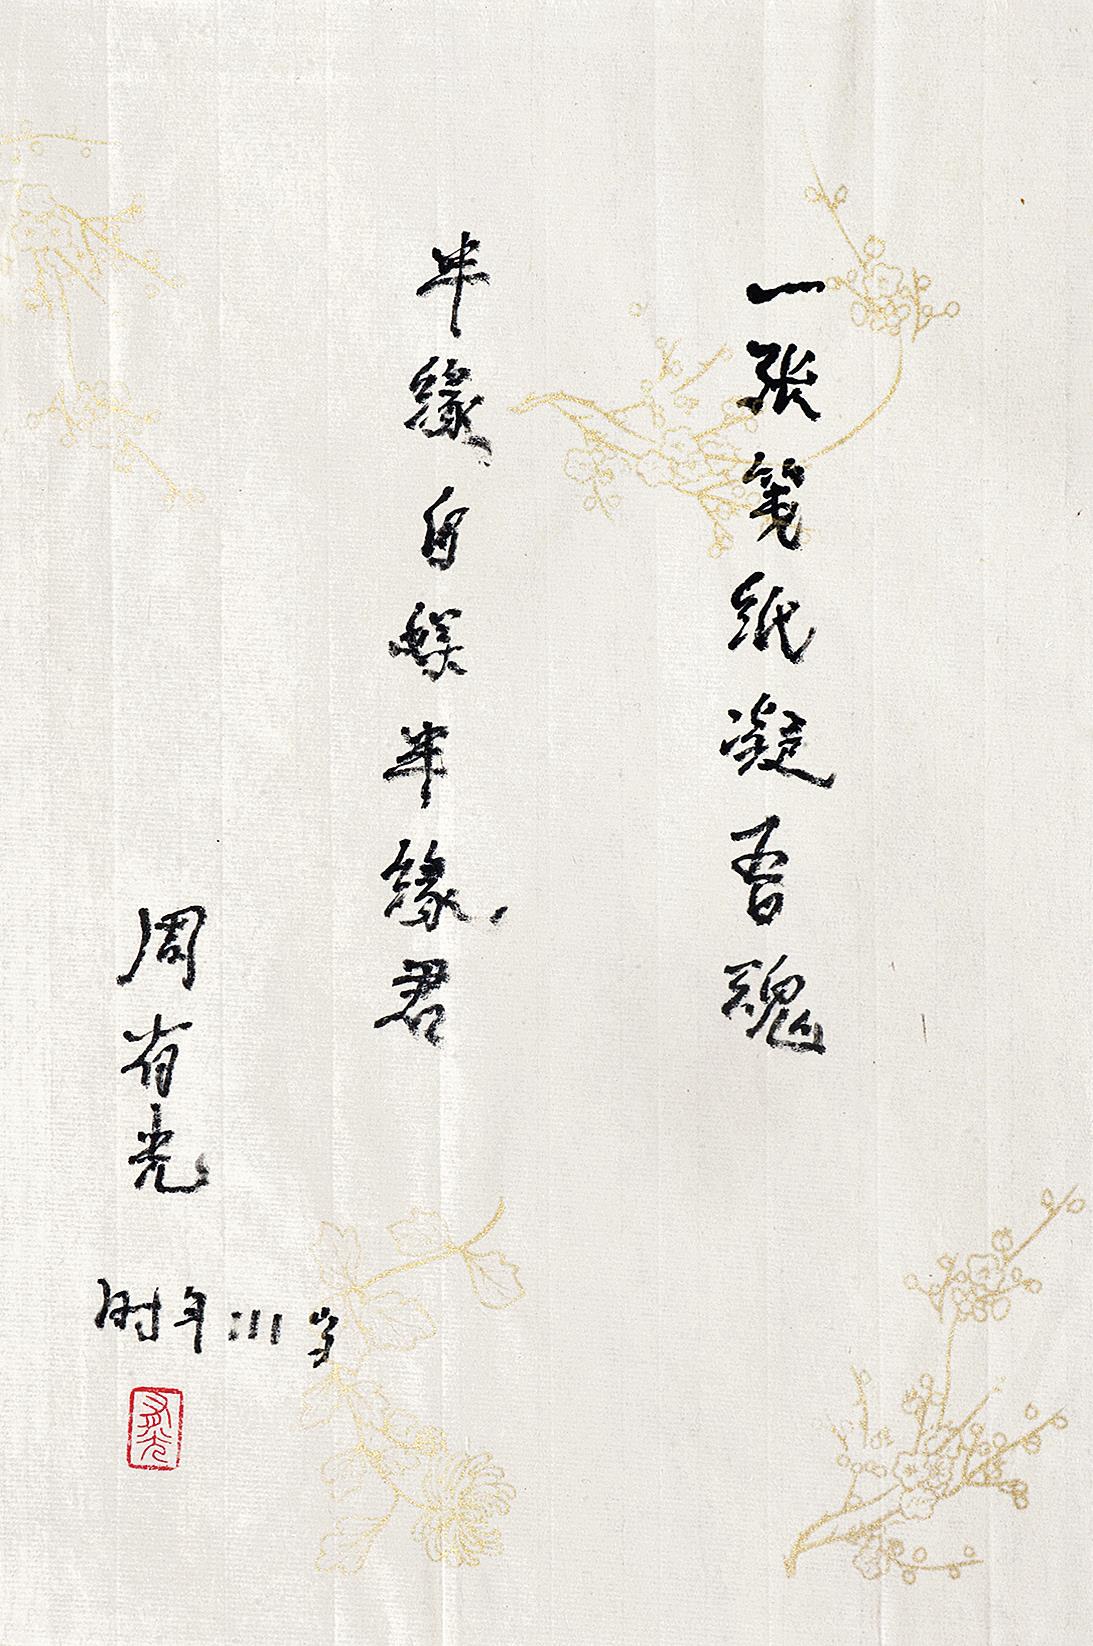 一张笺纸凝吾魂
半缘自娱半缘君
周有光
时年111岁
有光